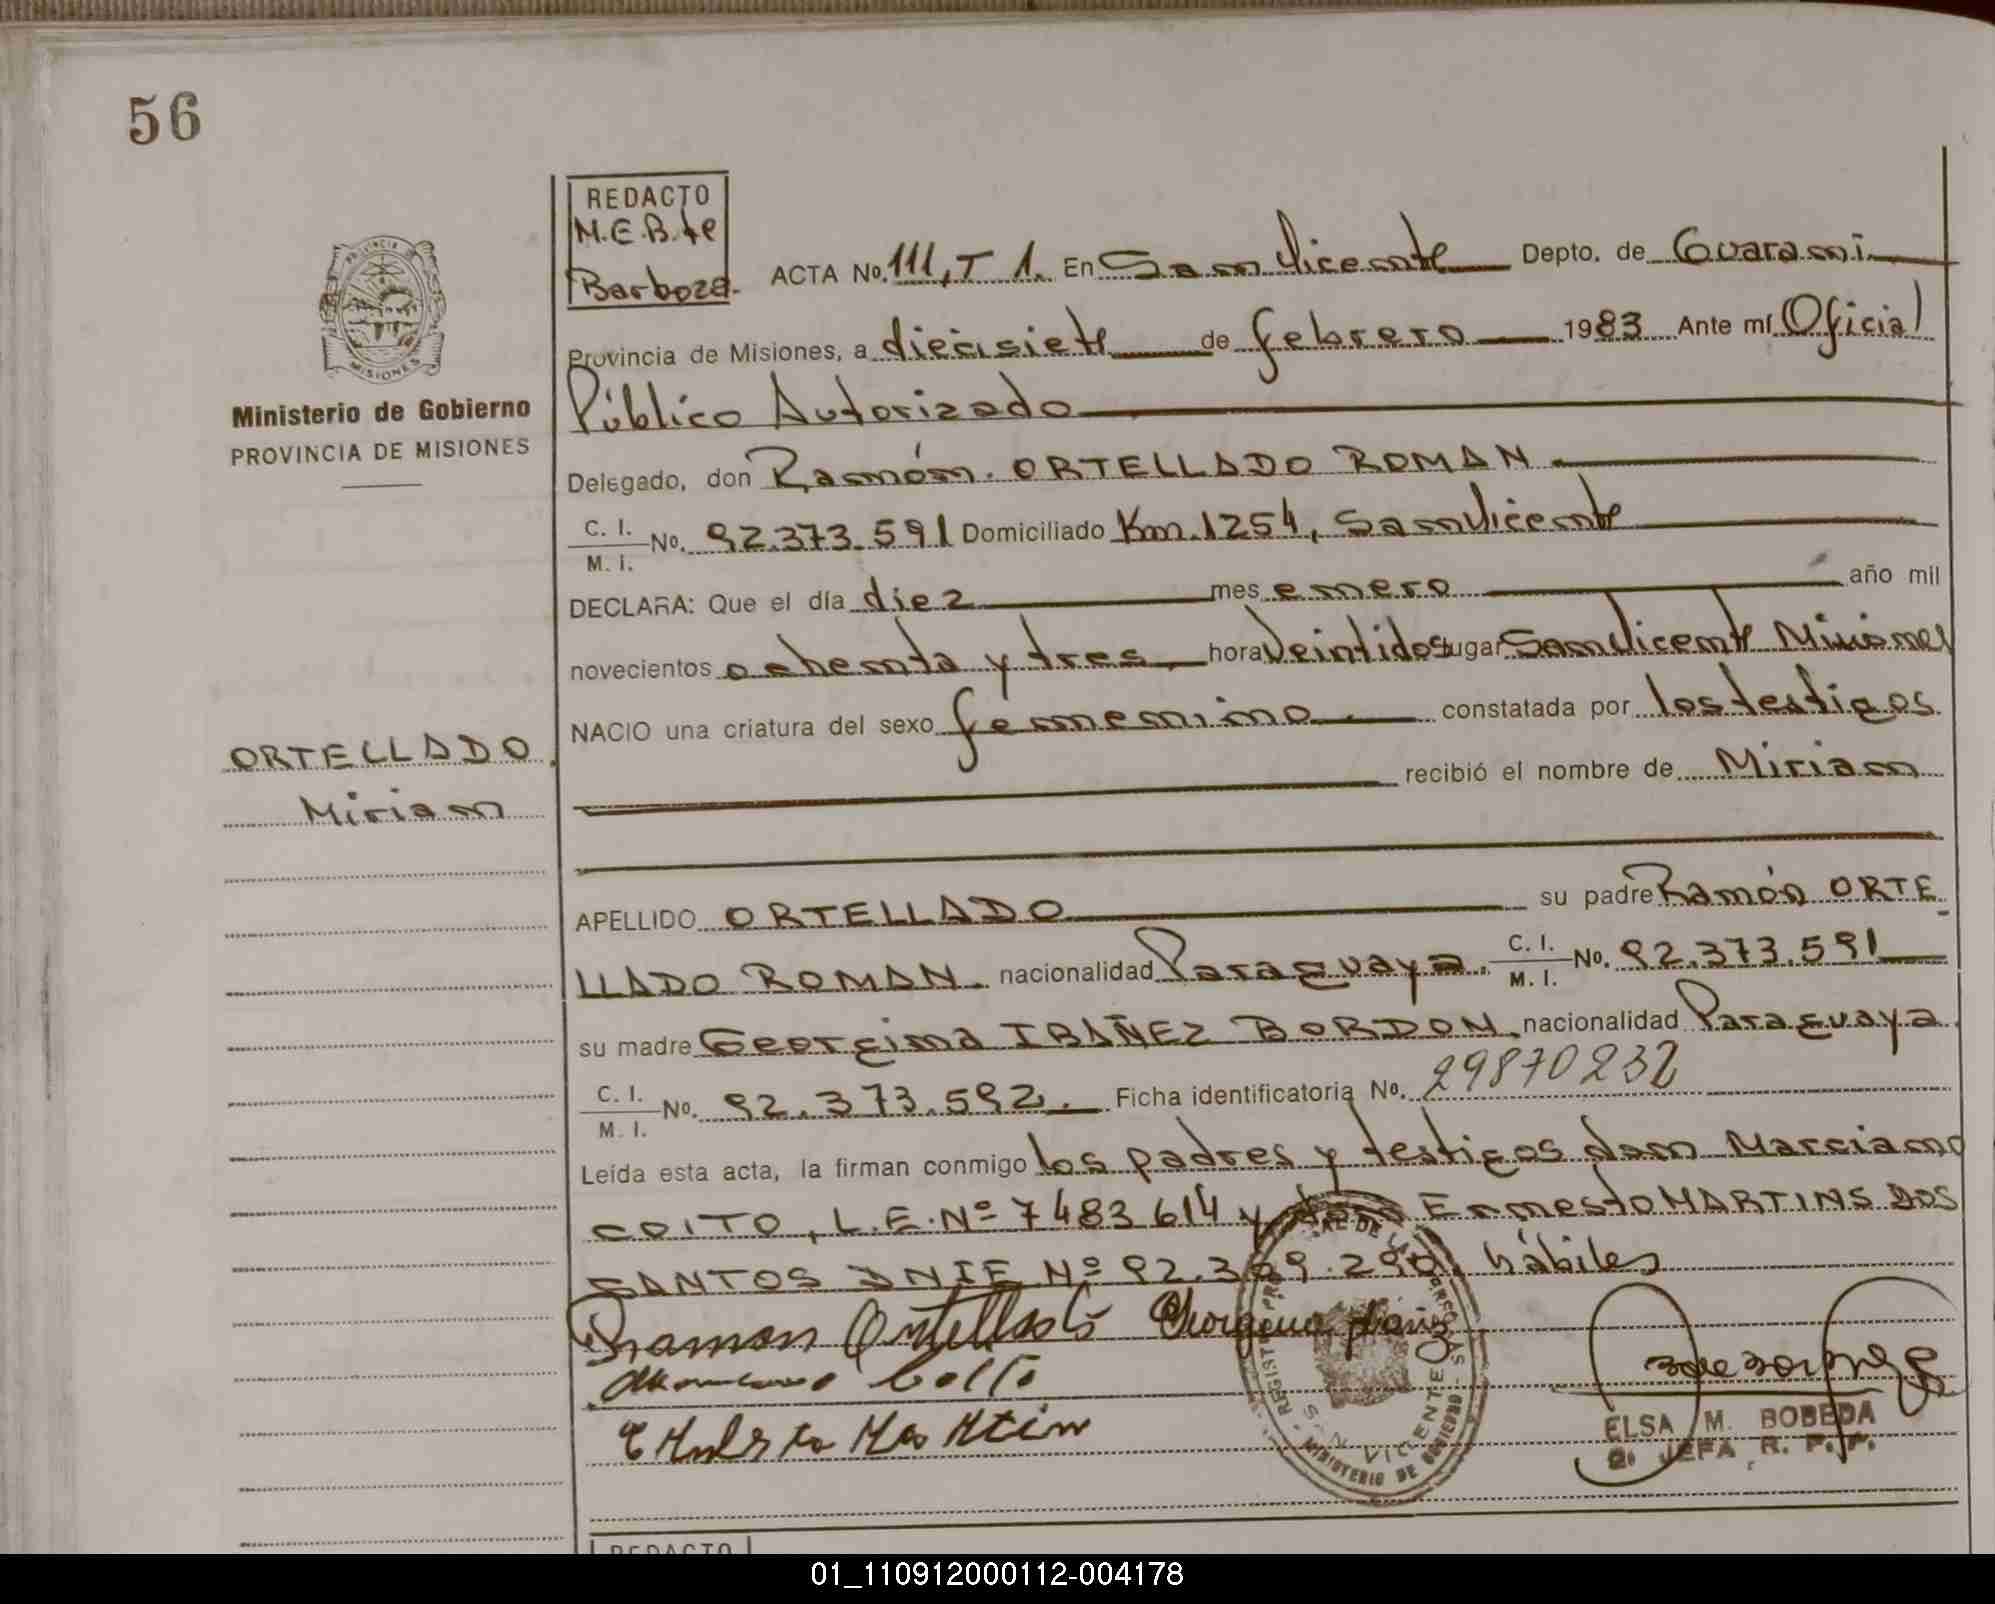 56
REDACTO
M.E.B. de
Barboza.
ACTA No. 111, T 1. En San Vicente Depto. de Guaraní
Provincia de Misiones, a diecisiete de febrero 1983 Ante mí Oficial
Público Autorizado
Ministerio de Gobierno
PROVINCIA DE MISIONES
Delegado, don Ramón. ORTELLADO ROMAN
C. I.
M. I. No. 92.373.591 Domiciliado Km. 1254, San Vicente
DECLARA: Que el día diez mes enero año mil
novecientos ochenta y tres, hora Veintidos lugar San Vicente Misiones
NACIO una criatura del sexo femenino constatada por los testigos
ORTELLADO,
Miriam
recibió el nombre de Miriam
APELLIDO ORTELLADO su padre Ramón ORTE
LLADO ROMAN. nacionalidad Paraguaya. C. I.
M. I. No. 92.373.591
su madre Georgina IBAÑEZ BORDON, nacionalidad Paraguaya
C. I.
M. I. No. 92.373.592. Ficha identificatoria No. 29870232
Leída esta acta, la firman conmigo los padres y testigos don Marciano
COITO, L.E. Nº 7483614 y don Ernesto MARTINS DOS
SANTOS DNIE Nº 92.369.290, hábiles
Ramon Ortellado Georgina Ibañez
MINISTERIO DE GOBIERNO
SAN VICENTE
ELSA M. BOBEDA
2. JEFA R. P. P.
REDACTO
01_110912000112-004178